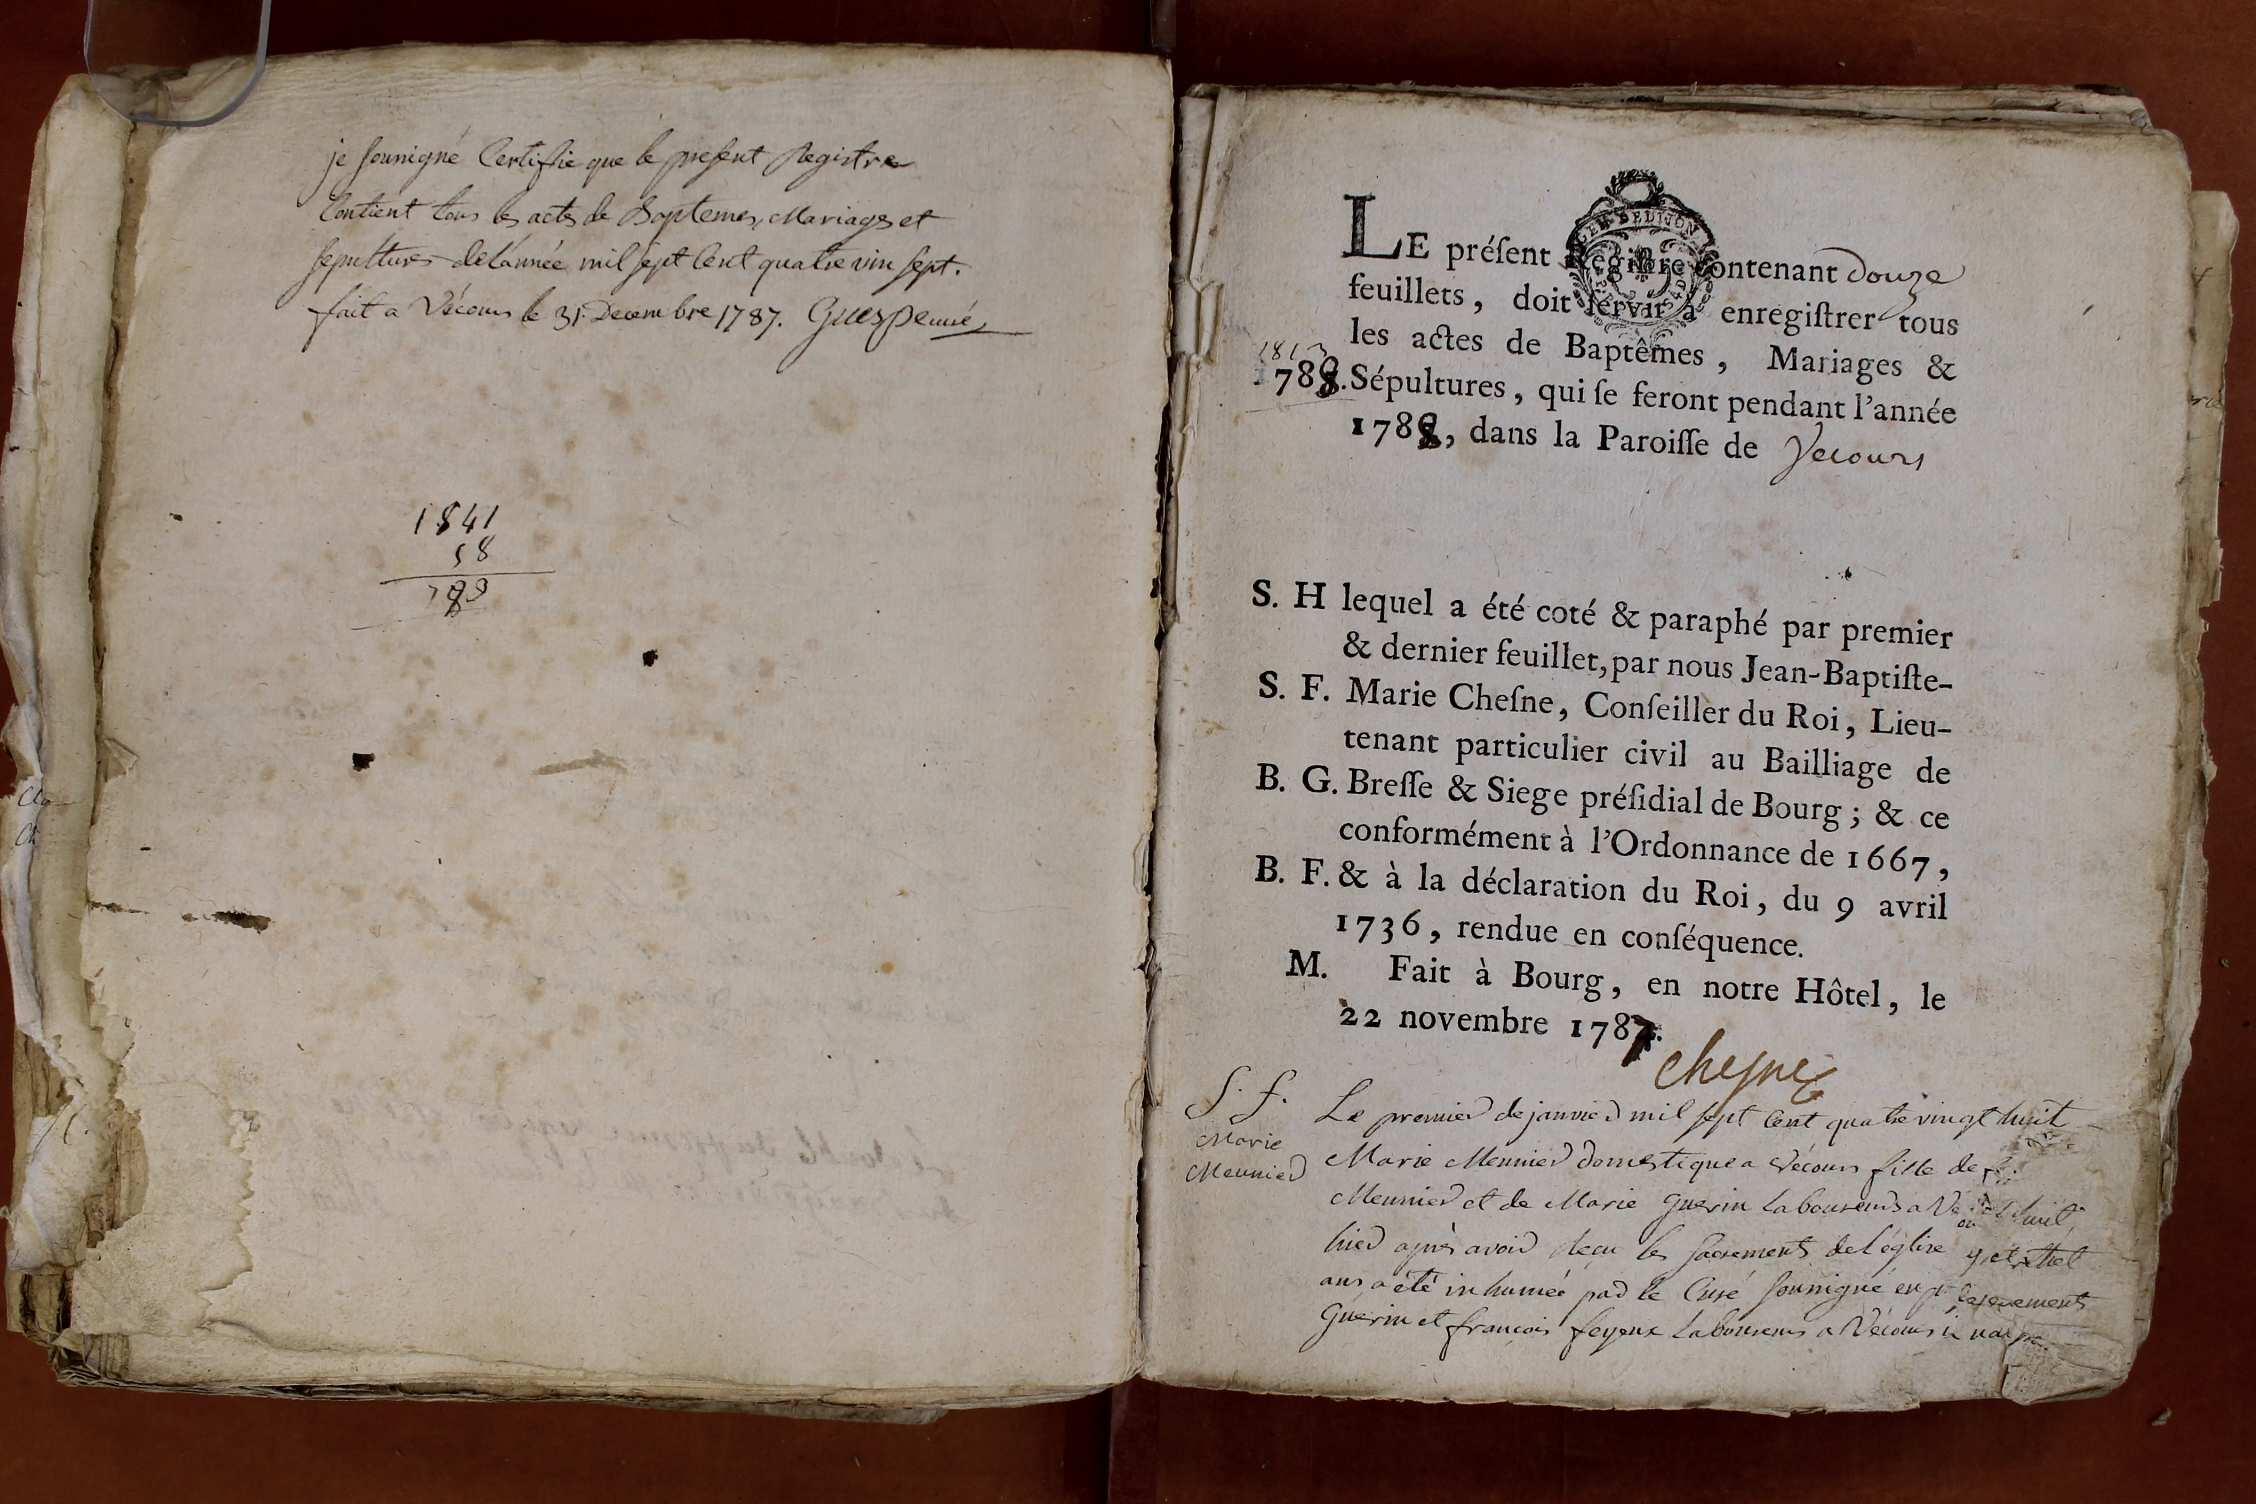 je sousigné Certifie que le present Registre
Contient tous les actes de Baptemes, Mariages et
sepultures de l'année mil sept Cent quatre vin sept.
fait a Vécours le 31. Decembre 1787. Guespeuné
1841
58
789
LE préſent Regiſtre contenant douze
feuillets, doit ſervir à enregiſtrer tous
les actes de Baptêmes, Mariages &
1813
1788. Sépultures, qui ſe feront pendant l'année
1788, dans la Paroiſſe de Vecours
S. H lequel a été coté & paraphé par premier
& dernier feuillet, par nous Jean-Baptiſte-
S. F. Marie Cheſne, Conſeiller du Roi, Lieu-
tenant particulier civil au Bailliage de
B. G. Breſſe & Siege préſidial de Bourg ; & ce
conformément à l'Ordonnance de 1667,
B. F. & à la déclaration du Roi, du 9 avril
1736, rendue en conſéquence.
M. Fait à Bourg, en notre Hôtel, le
22 novembre 1787.
Chesne
S. f.
Marie
Meunier
Le premier de janvier mil sept Cent quatre vingt huit
Marie Meunier domestique a Vécours fille de
Meunier et de Marie Guerin Laboureurs a
hier après avoir reçu les sacrements de l'église
ans a été inhumée par le Curé sousigné en
Guerin et françois feyeux Laboureurs a Vécours